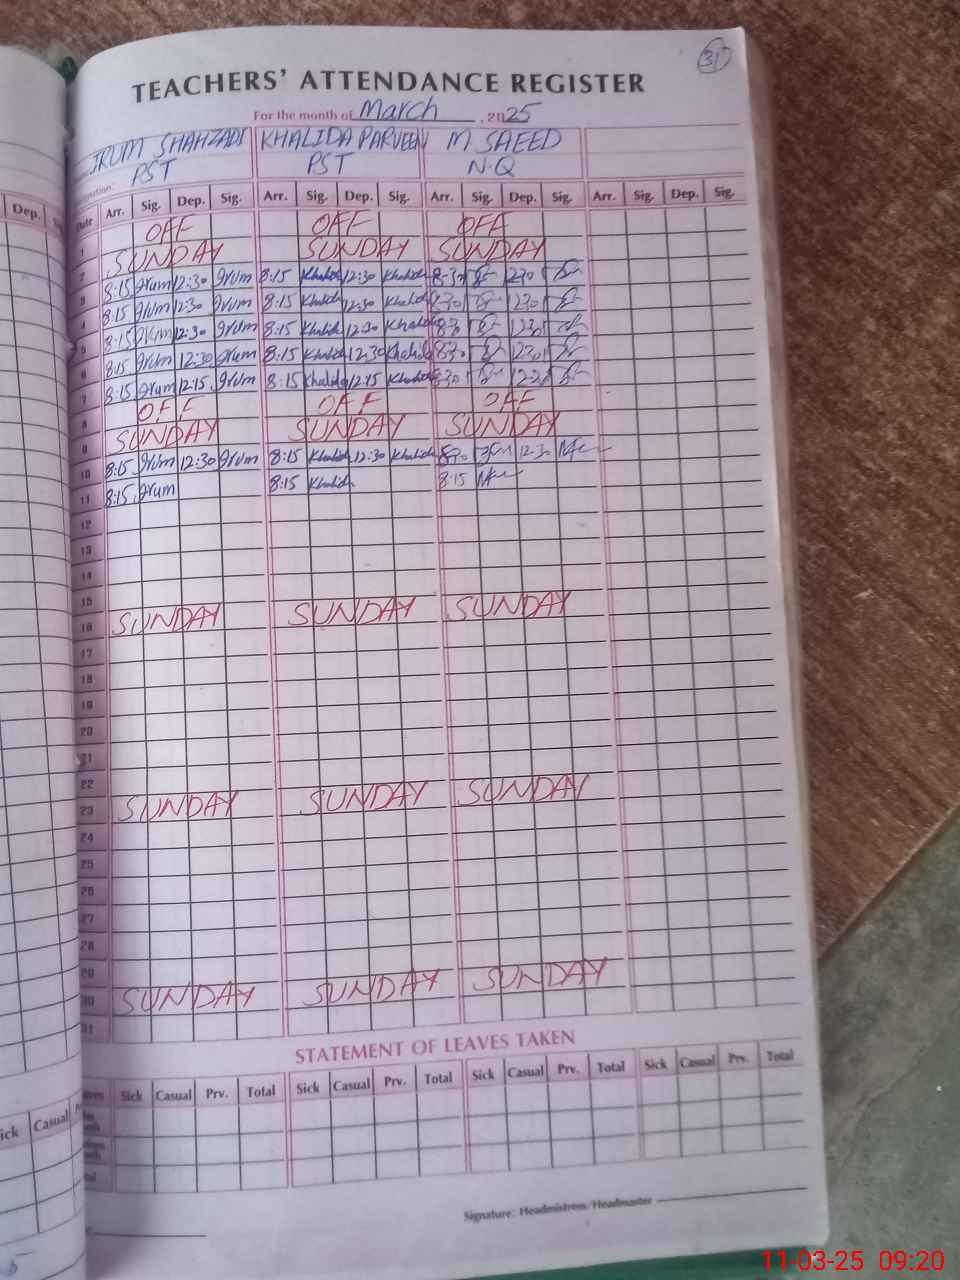 31
TEACHERS' ATTENDANCE REGISTER
For the month of March, 2025
IRUM SHAHZADI KHALIDA PARVEEN M SAEED
PST PST N.Q
Dep. Date Arr. Sig. Dep. Sig. Arr. Sig. Dep. Sig. Arr. Sig. Dep. Sig. Arr. Sig. Dep. Sig.
1 OFF OFF OFF
2 SUNDAY SUNDAY SUNDAY
3 8:15 Irum 12:30 Irum 8:15 Khalida 12:30 Khalida 8:30 1230
4 8:15 Irum 12:30 Irum 8:15 Khalida 12:30 Khalida 8:30 1230
5 8:15 Irum 12:30 Irum 8:15 Khalida 12:30 Khalida 830 1230
6 8:15 Irum 12:30 Irum 8:15 Khalida 12:30 Khalida 830 1230
7 8:15 Irum 12:15 Irum 8:15 Khalida 12:15 Khalida 830
8 OFF OFF OFF
9 SUNDAY SUNDAY SUNDAY
10 8:15 Irum 12:30 Irum 8:15 Khalida 12:30 Khalida 8:30 12:30
11 8:15 Irum 8:15 Khalida 8:15
12
13
14
15
16 SUNDAY SUNDAY SUNDAY
17
18
19
20
21
22
23 SUNDAY SUNDAY SUNDAY
24
25
26
27
28
29
30 SUNDAY SUNDAY SUNDAY
31
STATEMENT OF LEAVES TAKEN
Sick Casual Prv. Total Sick Casual Prv. Total Sick Casual Prv. Total Sick Casual Prv. Total
Casual
Signature: Headmistress/Headmaster
11-03-25 09:20